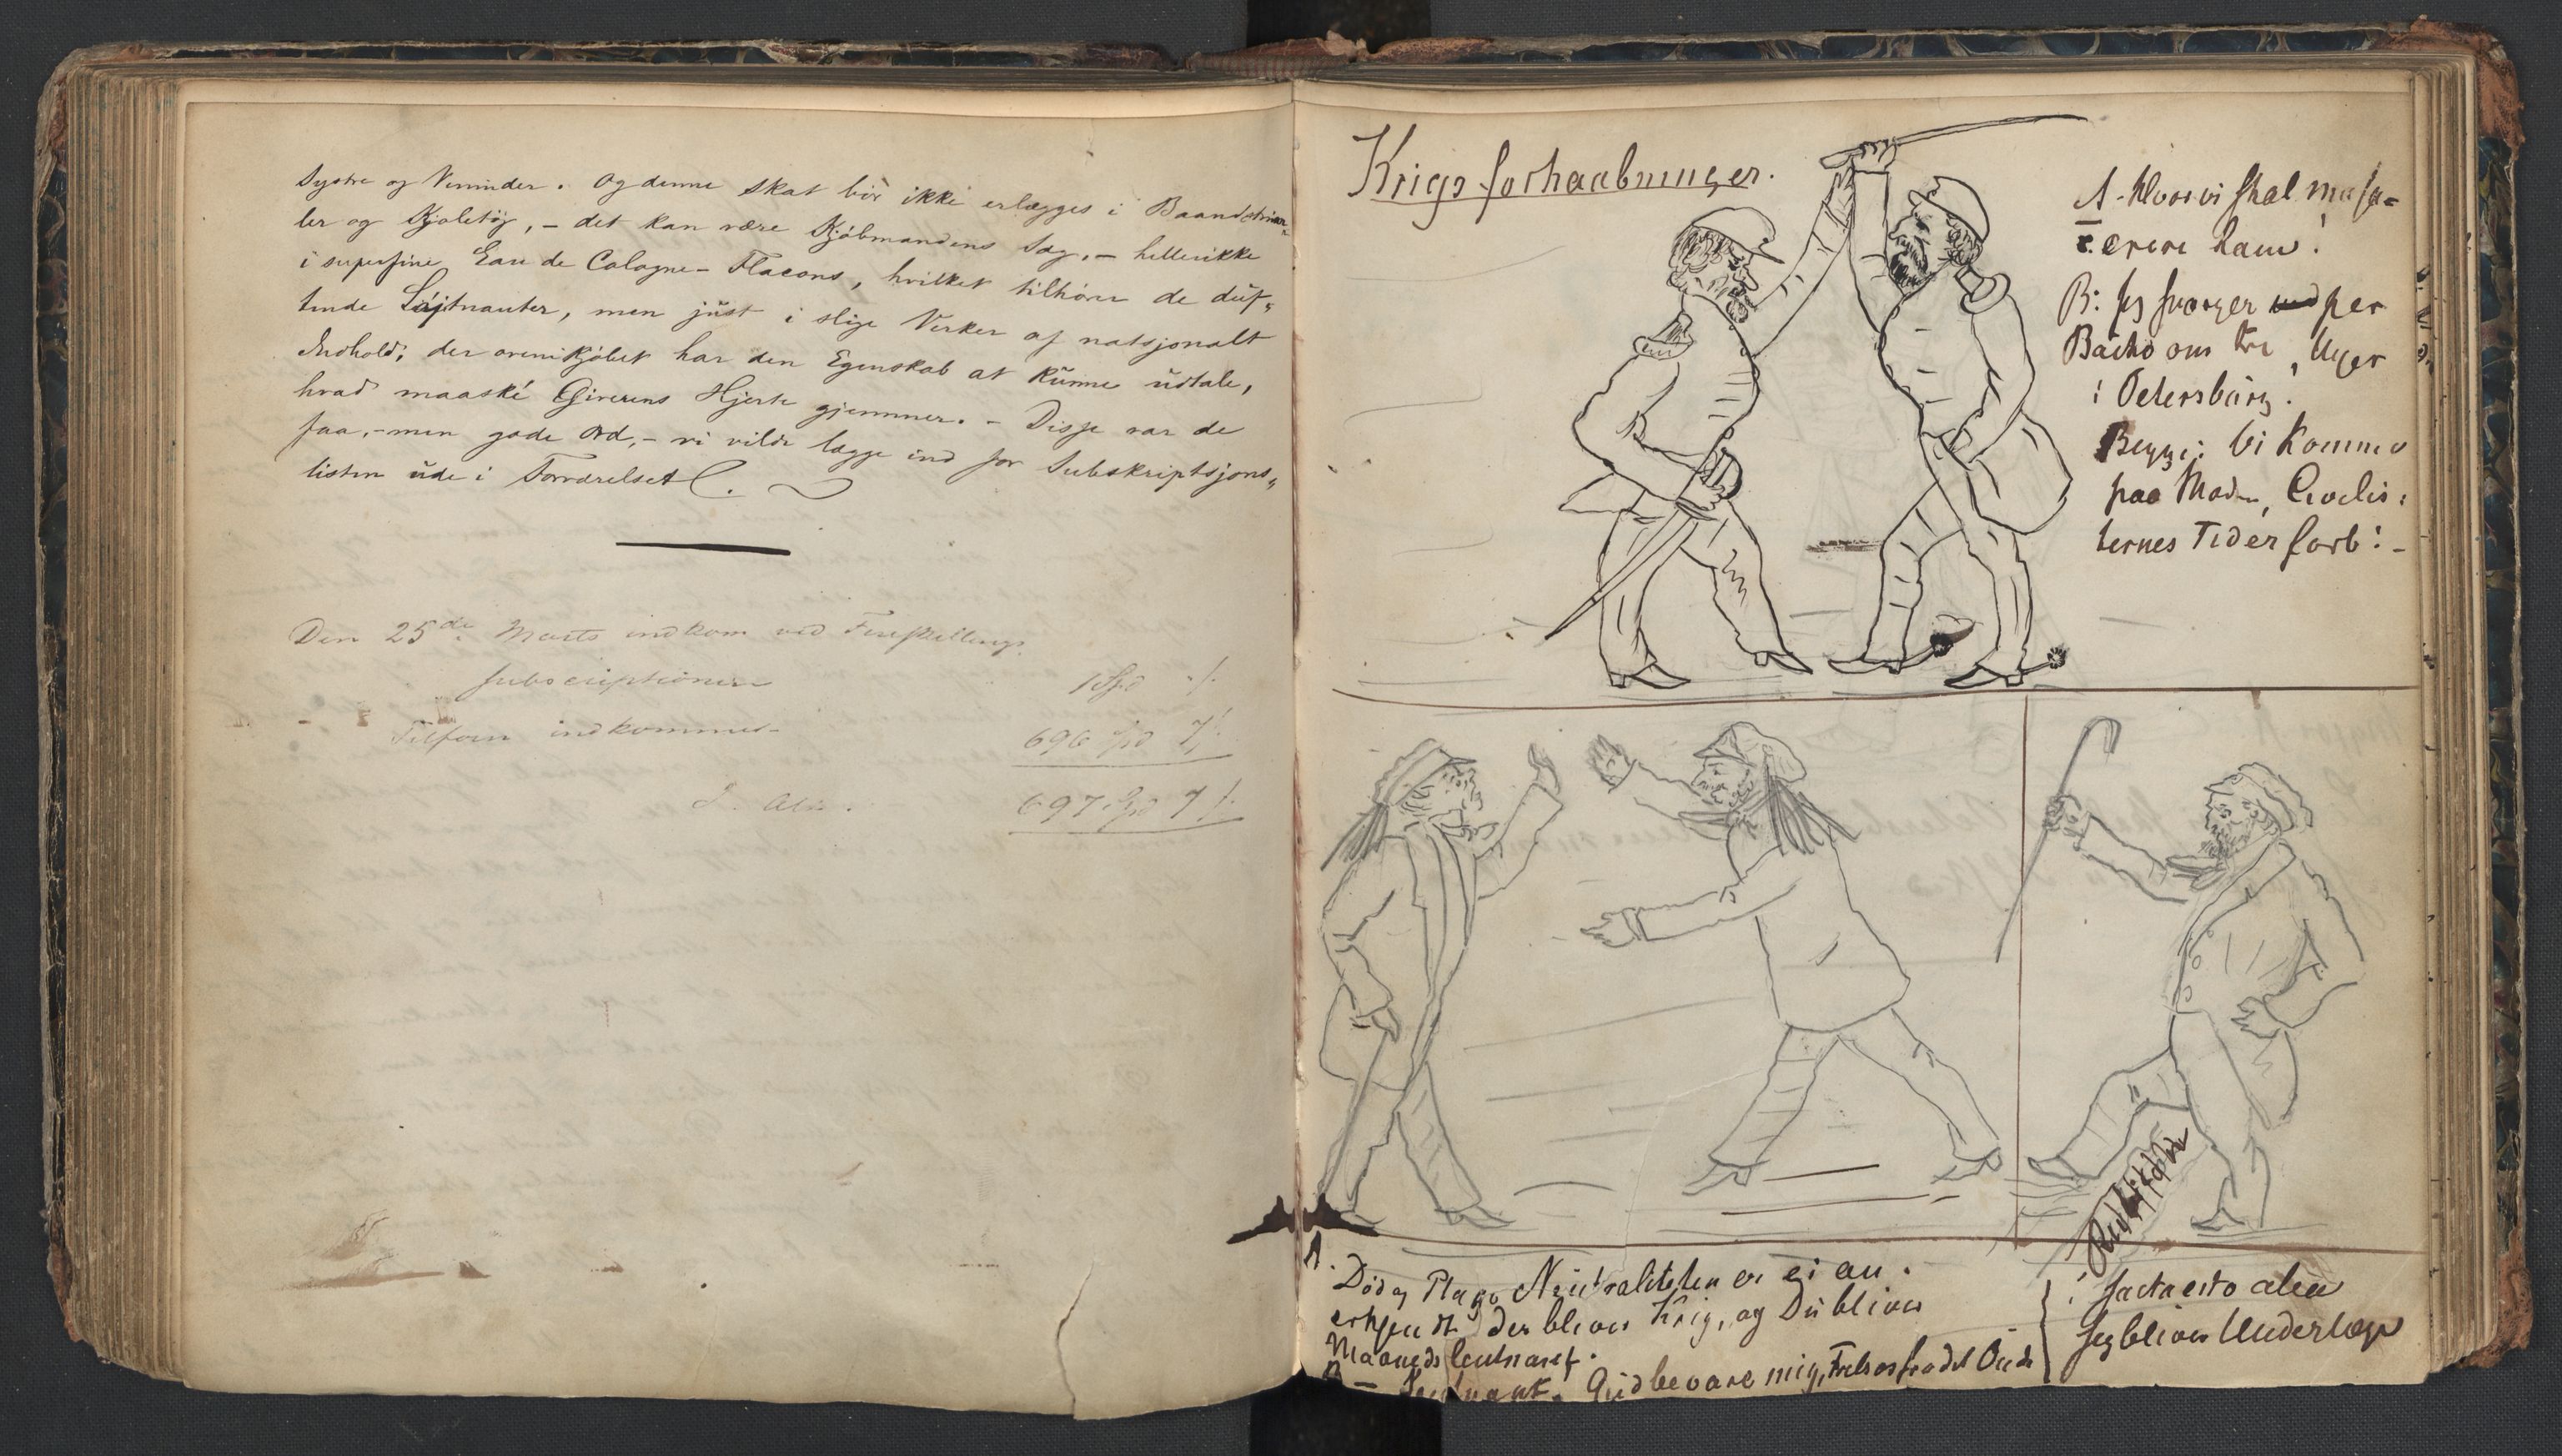 Systre og Veninder. Og denne Skat bör ikke erlægges i Baandstrim-
ler og Kjoletöj, - det kan være Kjöbmandens Sag, - heller ikke
i superfine Eau de Cologne-Flacons, hvilket tilhörer de duf-
tende Löjtnanter, men just i slige Verker af natsjonalt
Indhold, der ovenikjöbet har den Egenskab at kunne udtale,
hvad maaské Giverens Hjerte gjemmer. - Disse var de
faa, - men gode Ord, - vi vilde lægge ind for Subskriptsjons-
listen ude i Forværelset.
Den 25de Marts indkom ved Fireskillings
subscriptionen 1 Spd
Tilforn indkommet 696 Spd 7
697 Spd 7
Krigsforhaabninger.
A. Hvor vi skal massa-
crere ham!
B: Jeg sværger ved per
Bacho om tre Uger
i Petersburg.
Begge: Vi komme
paa Moden, Civilis-
ternes Tider forbi -
A. Död og Plage Neutraliteten er ei an-
erkjendt der bliver Krig, og Du bliver
Maanedsleutnant.
B - Leutnant. Gud bevare mig, Frels os fra det Onde
Jacta esto alea
Jeg bliver Underlæge